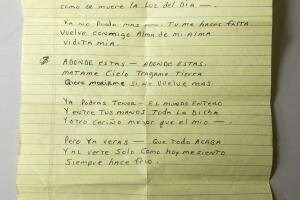 como se muere la luz del dia —.
Ya no puedo mas —. Tu me haces falta
Vuelve conmigo Alma de mi Alma
Vidita mia.
Adonde estas — Adonde estas.
Matame Cielo Tragame Tierra
Quiero morirme si no vuelve mas
Ya podras tener — El mundo entero
Y entre tus manos toda la dicha
Y otro cariño mejor que el mio —.
Pero ya veras — Que todo acaba
Y al verte solo como hoy me siento
Siempre hace frio.